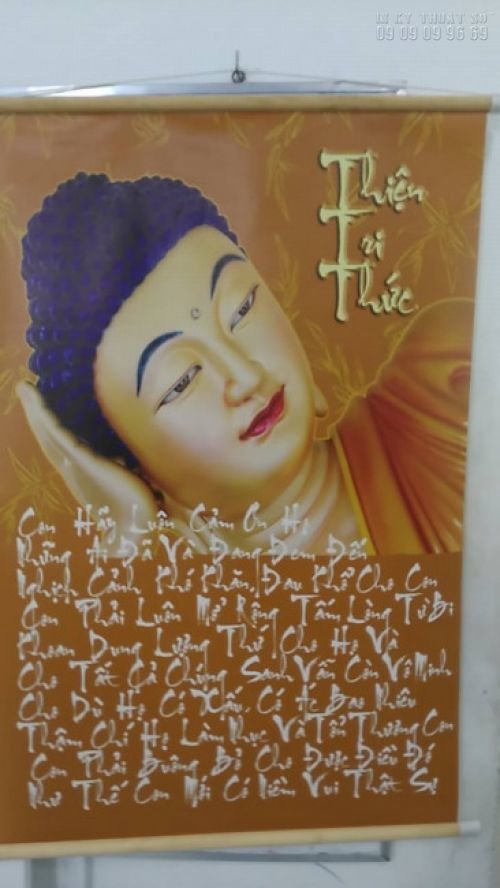 IN KỸ THUẬT SỐ
09 09 09 96 69
Thiện
Tri
Thức
Con Hãy Luôn Cảm Ơn Họ
Những Ai Đã Và Đang Đem Đến
Nghịch Cảnh Khó Khăn, Đau Khổ Cho Con
Con Phải Luôn Mở Rộng Tấm Lòng Từ Bi
Khoan Dung Lượng Thứ Cho Họ Và
Cho Tất Cả Chúng Sanh Vẫn Còn Vô Minh
Cho Dù Họ Có Xấu, Có Ác Bao Nhiêu
Thậm Chí Họ Làm Nhục Và Tổn Thương Con
Con Phải Buông Bỏ Cho Được Điều Đó
Như Thế Con Mới Có Niềm Vui Thật Sự